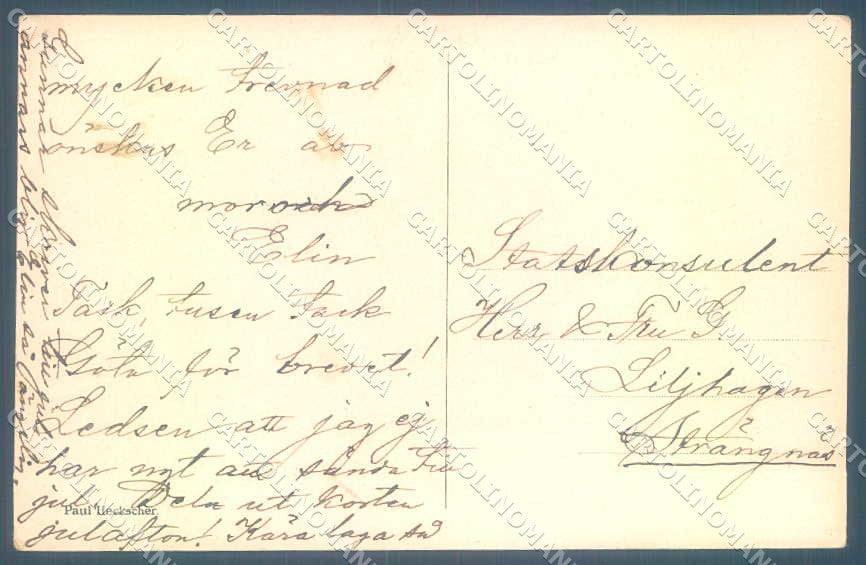 mycken trevnad
önskas Er av
mor och
Elin
Tack, tusen tack
Göta för brevet!
Ledsen att jag ej
har nyt att sända till
jul. Dela ut korten
julafton! Kära laga så
Gunnar skriver till jul
annars blir Elin så ängslig.
Statskonsulent
Herr & Fru G.
Liljhagen
Strängnäs
Paul Heckscher.
CARTOLINOMANIA